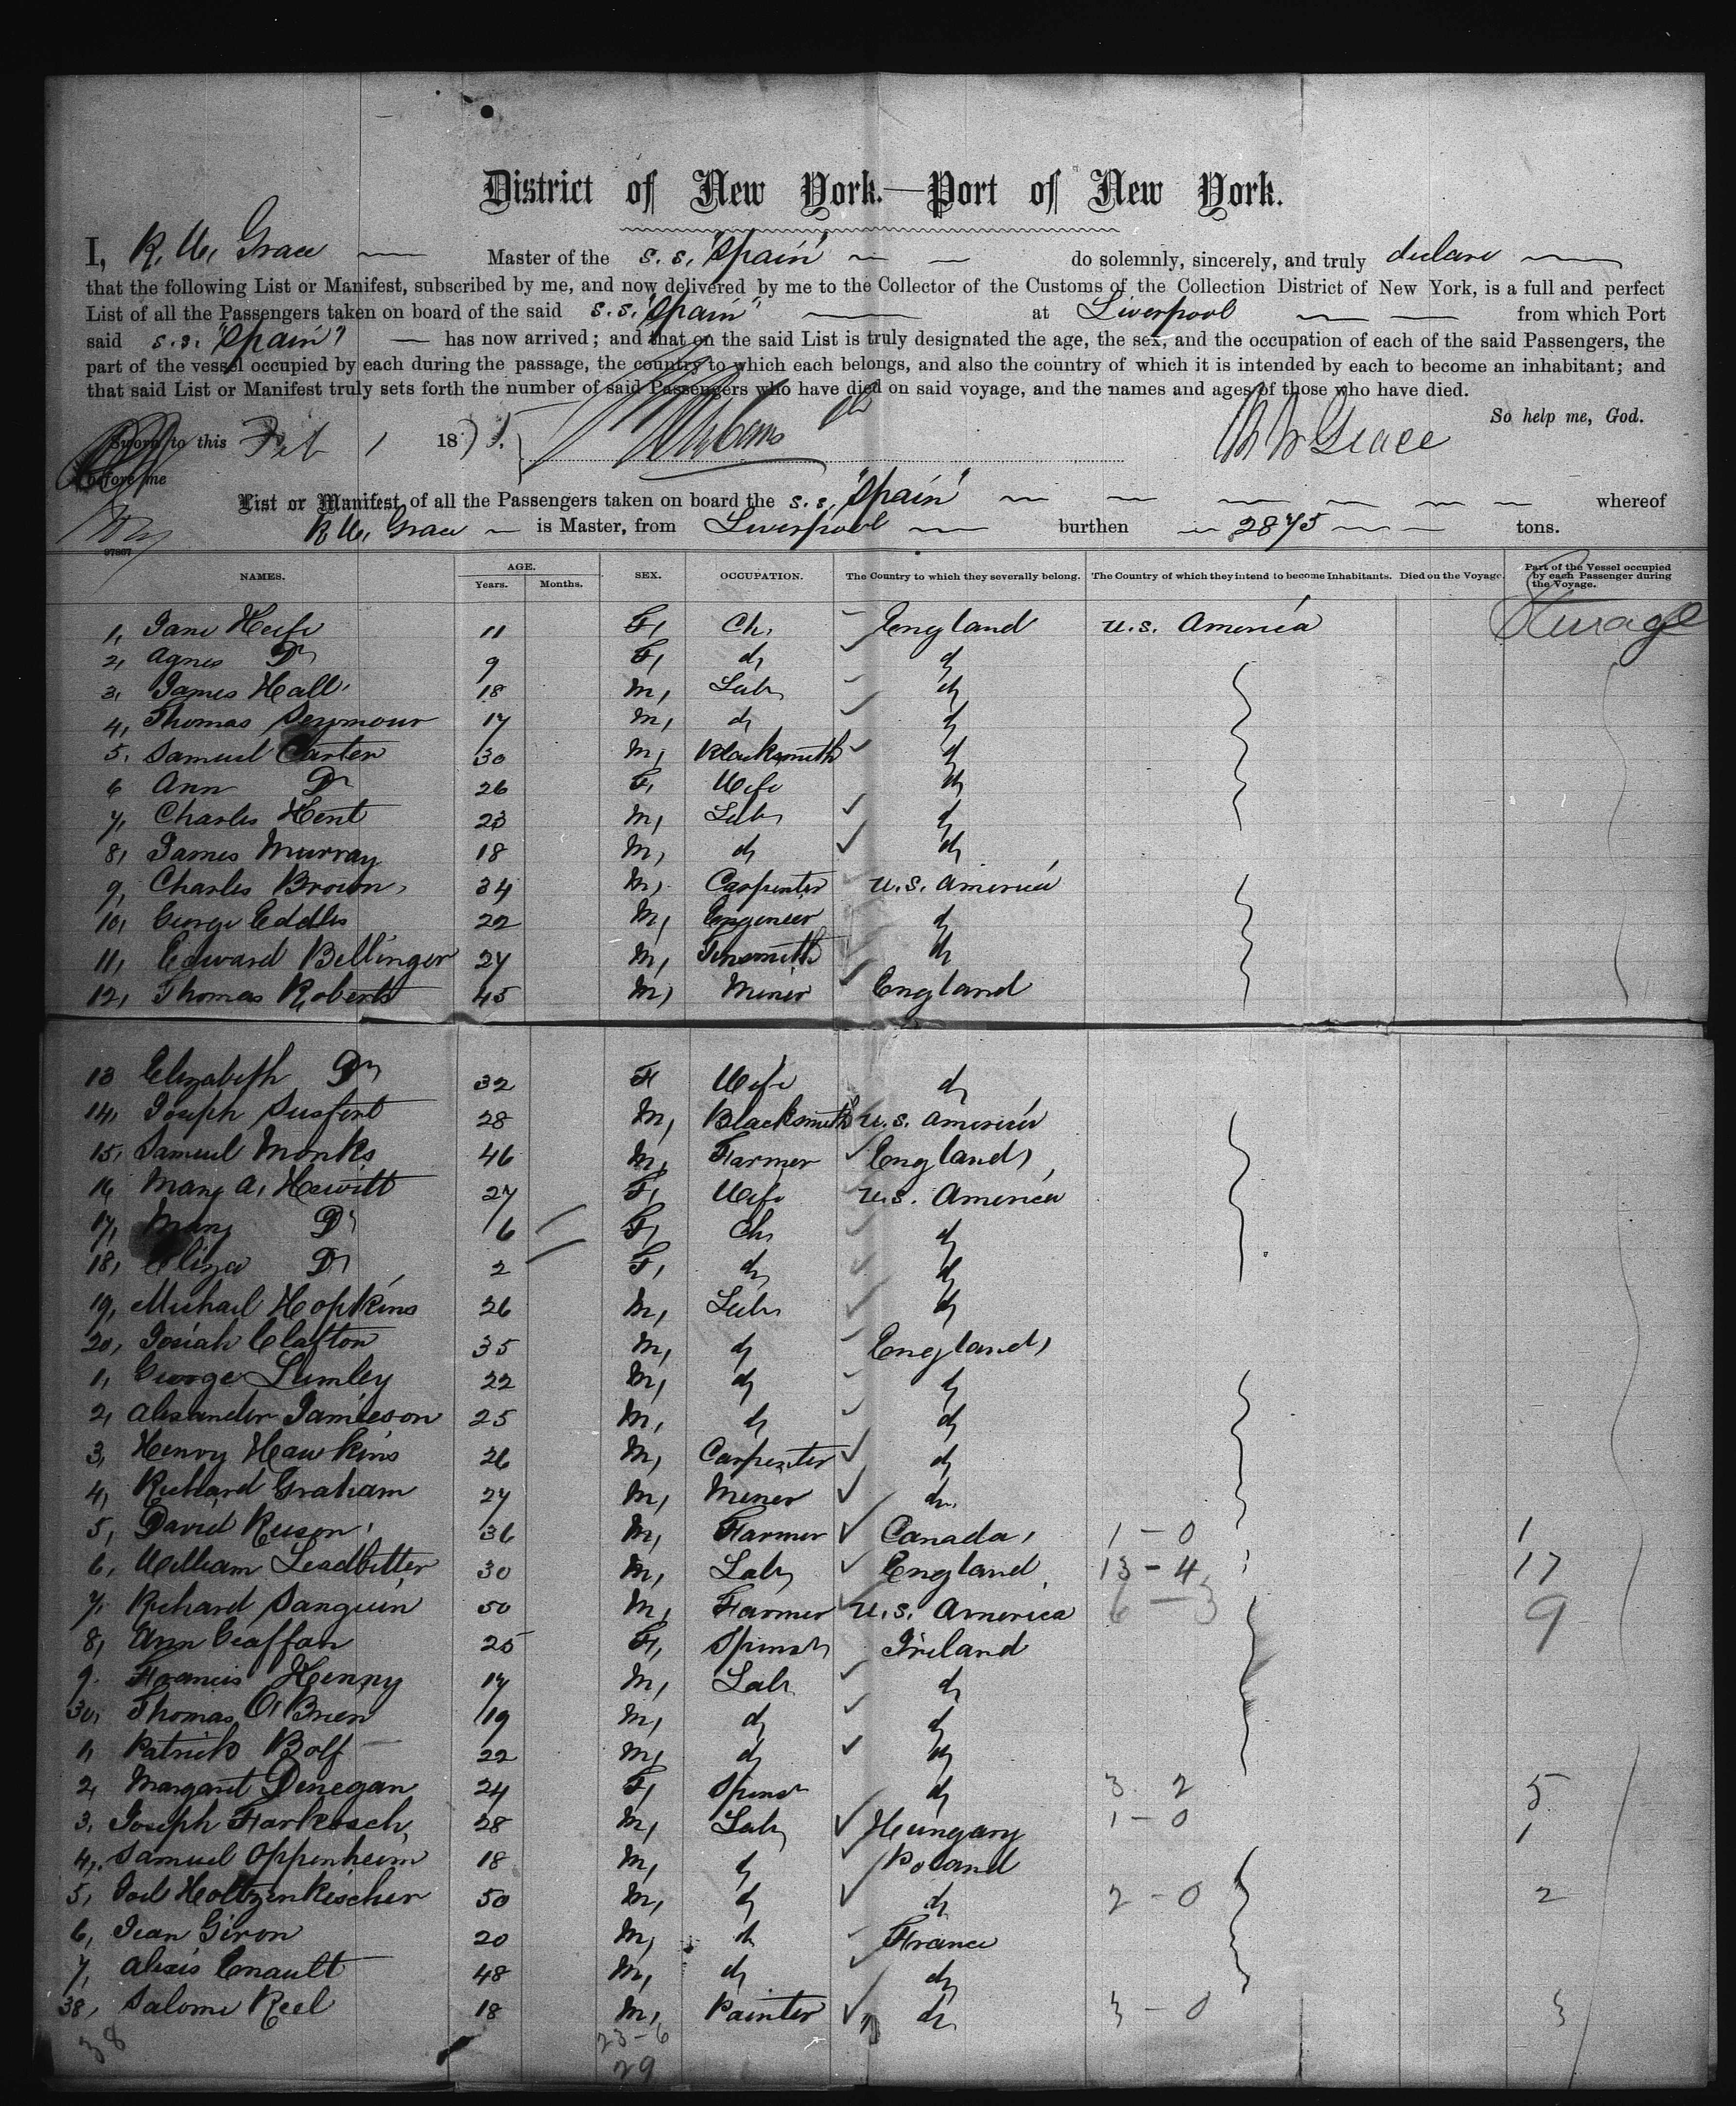 District of New York.—Port of New York.
I, R. W. Grace — Master of the s.s. "Spain" — — do solemnly, sincerely, and truly declare —
that the following List or Manifest, subscribed by me, and now delivered by me to the Collector of the Customs of the Collection District of New York, is a full and perfect
List of all the Passengers taken on board of the said s.s. "Spain" — at Liverpool — — from which Port
said s.s. "Spain" — has now arrived; and that on the said List is truly designated the age, the sex, and the occupation of each of the said Passengers, the
part of the vessel occupied by each during the passage, the country to which each belongs, and also the country of which it is intended by each to become an inhabitant; and
that said List or Manifest truly sets forth the number of said Passengers who have died on said voyage, and the names and ages of those who have died.
So help me, God.
Sworn to this Feb 1 1875. R W Grace
before me
List or Manifest of all the Passengers taken on board the s.s. "Spain" — — — — — — whereof
R. W. Grace — is Master, from Liverpool — burthen — 2875 — — tons.
97867
NAMES. AGE. Years. Months. SEX. OCCUPATION. The Country to which they severally belong. The Country of which they intend to become Inhabitants. Died on the Voyage. Part of the Vessel occupied by each Passenger during the Voyage.
1, Jane 11 F, Ch, England U.S. America Steerage
2, Agnes Do 9 F, do do
3, James Hall 18 M, Labr do
4, Thomas Seymour 17 M, do do
5. Samuel Carter 30 M, Blacksmith do
6 Ann Do 26 F, Wife do
7, Charles Hent 23 M, Labr do
8, James Murray 18 M, do do
9, Charles Brown 34 M, Carpenter U.S. America
10, George Eddles 22 M, Engineer do
11, Edward Bellinger 27 M, Tinsmith do
12, Thomas Roberts 45 M, Miner England
13 Elizabeth Do 32 F Wife do
14, Joseph 28 M, Blacksmith U.S. America
15, Samuel Monks 46 M, Farmer England,
16 Mary A, Hewitt 27 F, Wife U.S. America
17, Mary Do 6 F, Ch, do
18, Eliza Do 2 F, do do
19, Michael Hopkins 26 M, Labr do
20, Josiah Clafton 35 M, do England,
1, George Lumley 22 M, do do
2, Alexander Jamieson 25 M, do do
3, Henry Hawkins 26 M, Carpenter do
4, Richard Graham 27 M, Miner do
5, David 36 M, Farmer Canada, 1 - 0 1
6, William Leadbitter 30 M, Labr England 13 - 4 17
7, Richard Sanguin 50 M, Farmer U.S. America 6 - 3 9
8, Ann 25 F, Spinstr Ireland
9. Francis Henny 17 M, Labr do
30, Thomas O'Brien 19 M, do do
1, Patrick Bolf 22 M, do do
2, Margaret Denegan 24 F, Spinst do 3 2 5
3, Joseph Farkosch, 28 M, Labr Hungary 1 - 0 1
4, Samuel Oppenheim 18 M, do Poland
5, Joel 50 M, do do 2 - 0 2
6, Jean Giron 20 M, do France
7, Alexis Enault 48 M, do do
38, Salome Reel 18 M, Painter do 3 - 0 3
38 23-6
29